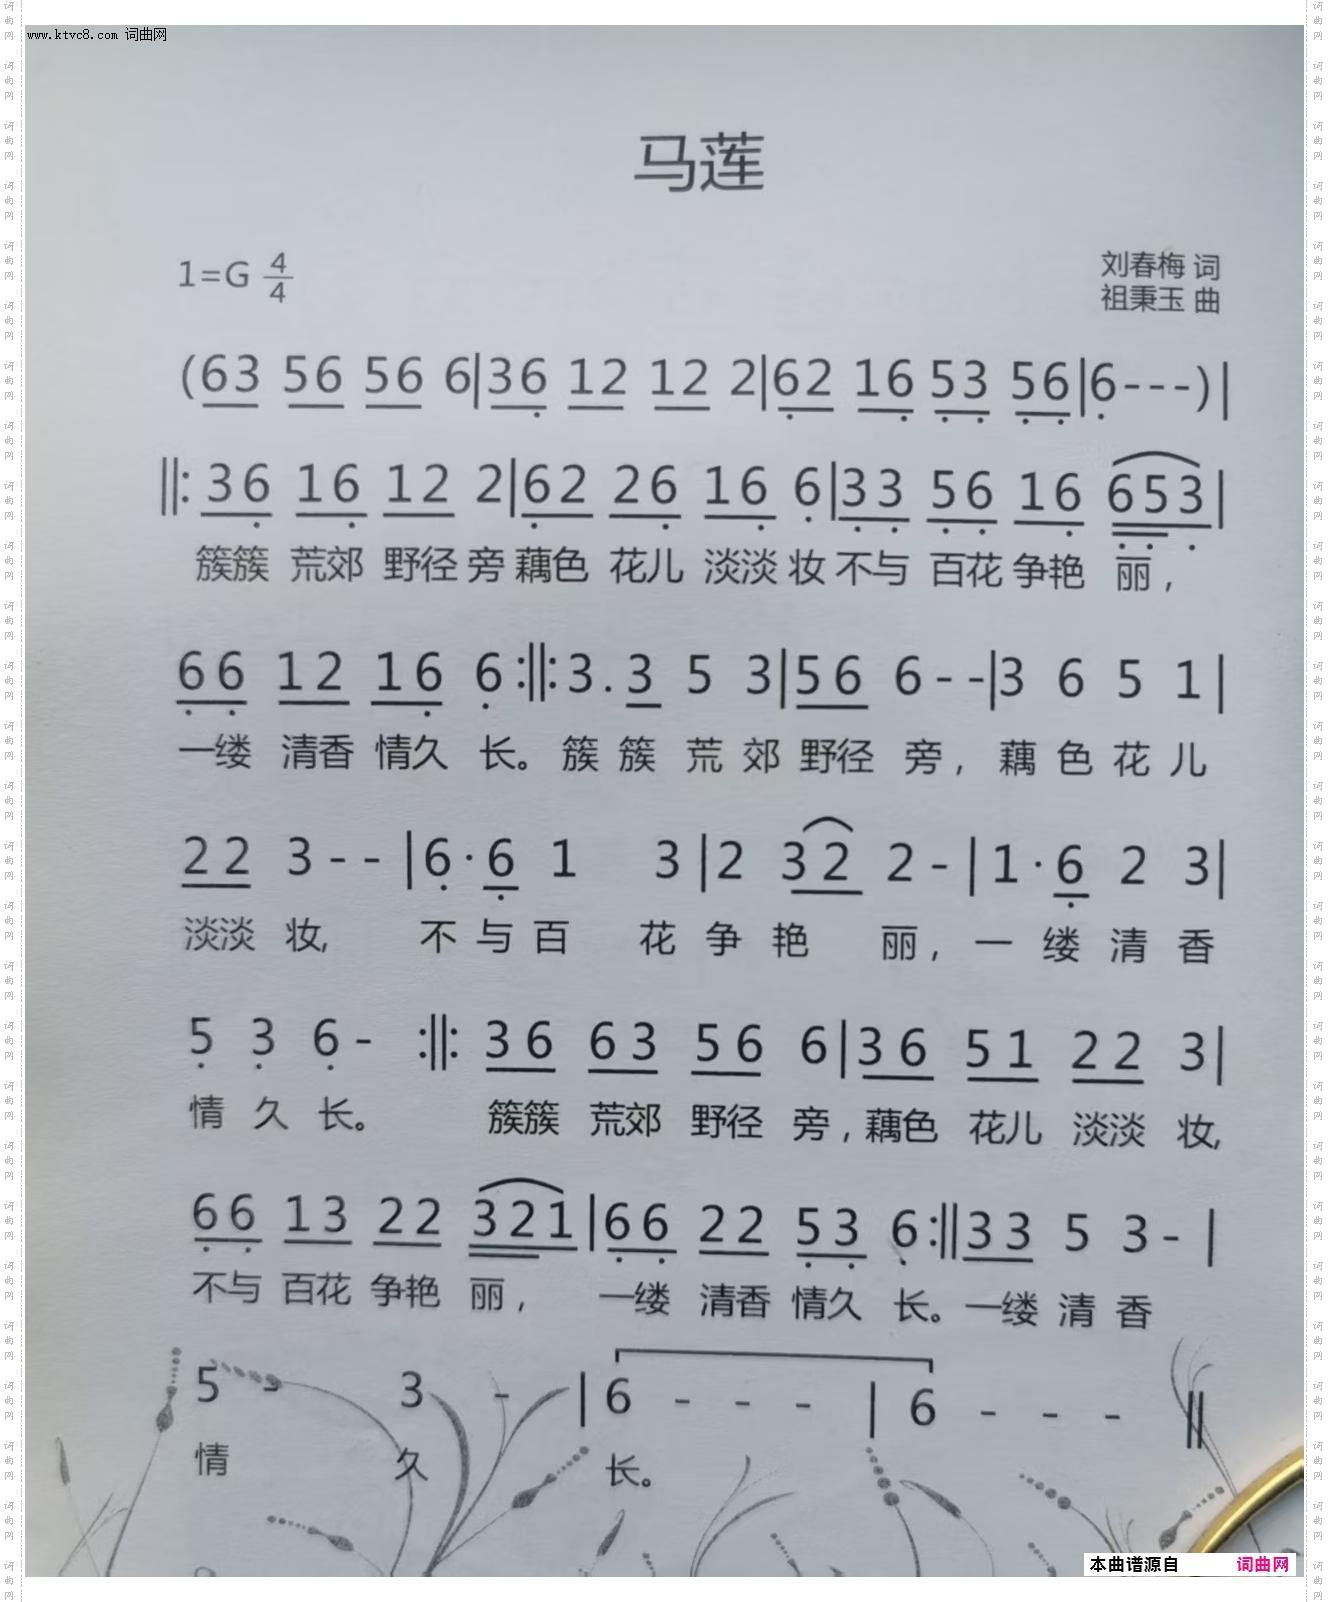 www.ktvc8.com 词曲网
马莲
1=G 4/4
刘春梅 词
祖秉玉 曲
(63 56 56 6|36 12 12 2|62 16 53 56|6---)|
||:36 16 12 2|62 26 16 6|33 56 16 653|
簇簇 荒郊 野径 旁 藕色 花儿 淡淡 妆 不与 百花 争艳 丽，
66 12 16 6:||:3.3 5 3|56 6--|3 6 5 1|
一缕 清香 情久 长。簇 簇 荒 郊 野径 旁，藕 色 花 儿
22 3-- |6·6 1 3|2 32 2-|1·6 2 3|
淡淡 妆, 不 与 百 花 争 艳 丽，一 缕 清 香
5 3 6- :||: 36 63 56 6|36 51 22 3|
情 久 长。 簇簇 荒郊 野径 旁，藕色 花儿 淡淡 妆,
66 13 22 321|66 22 53 6:||33 5 3-|
不与 百花 争艳 丽， 一缕 清香 情久 长。一缕 清 香
5 - 3 - |6 - - - |6 - - - ||
情 久 长。
本曲谱源自 词曲网